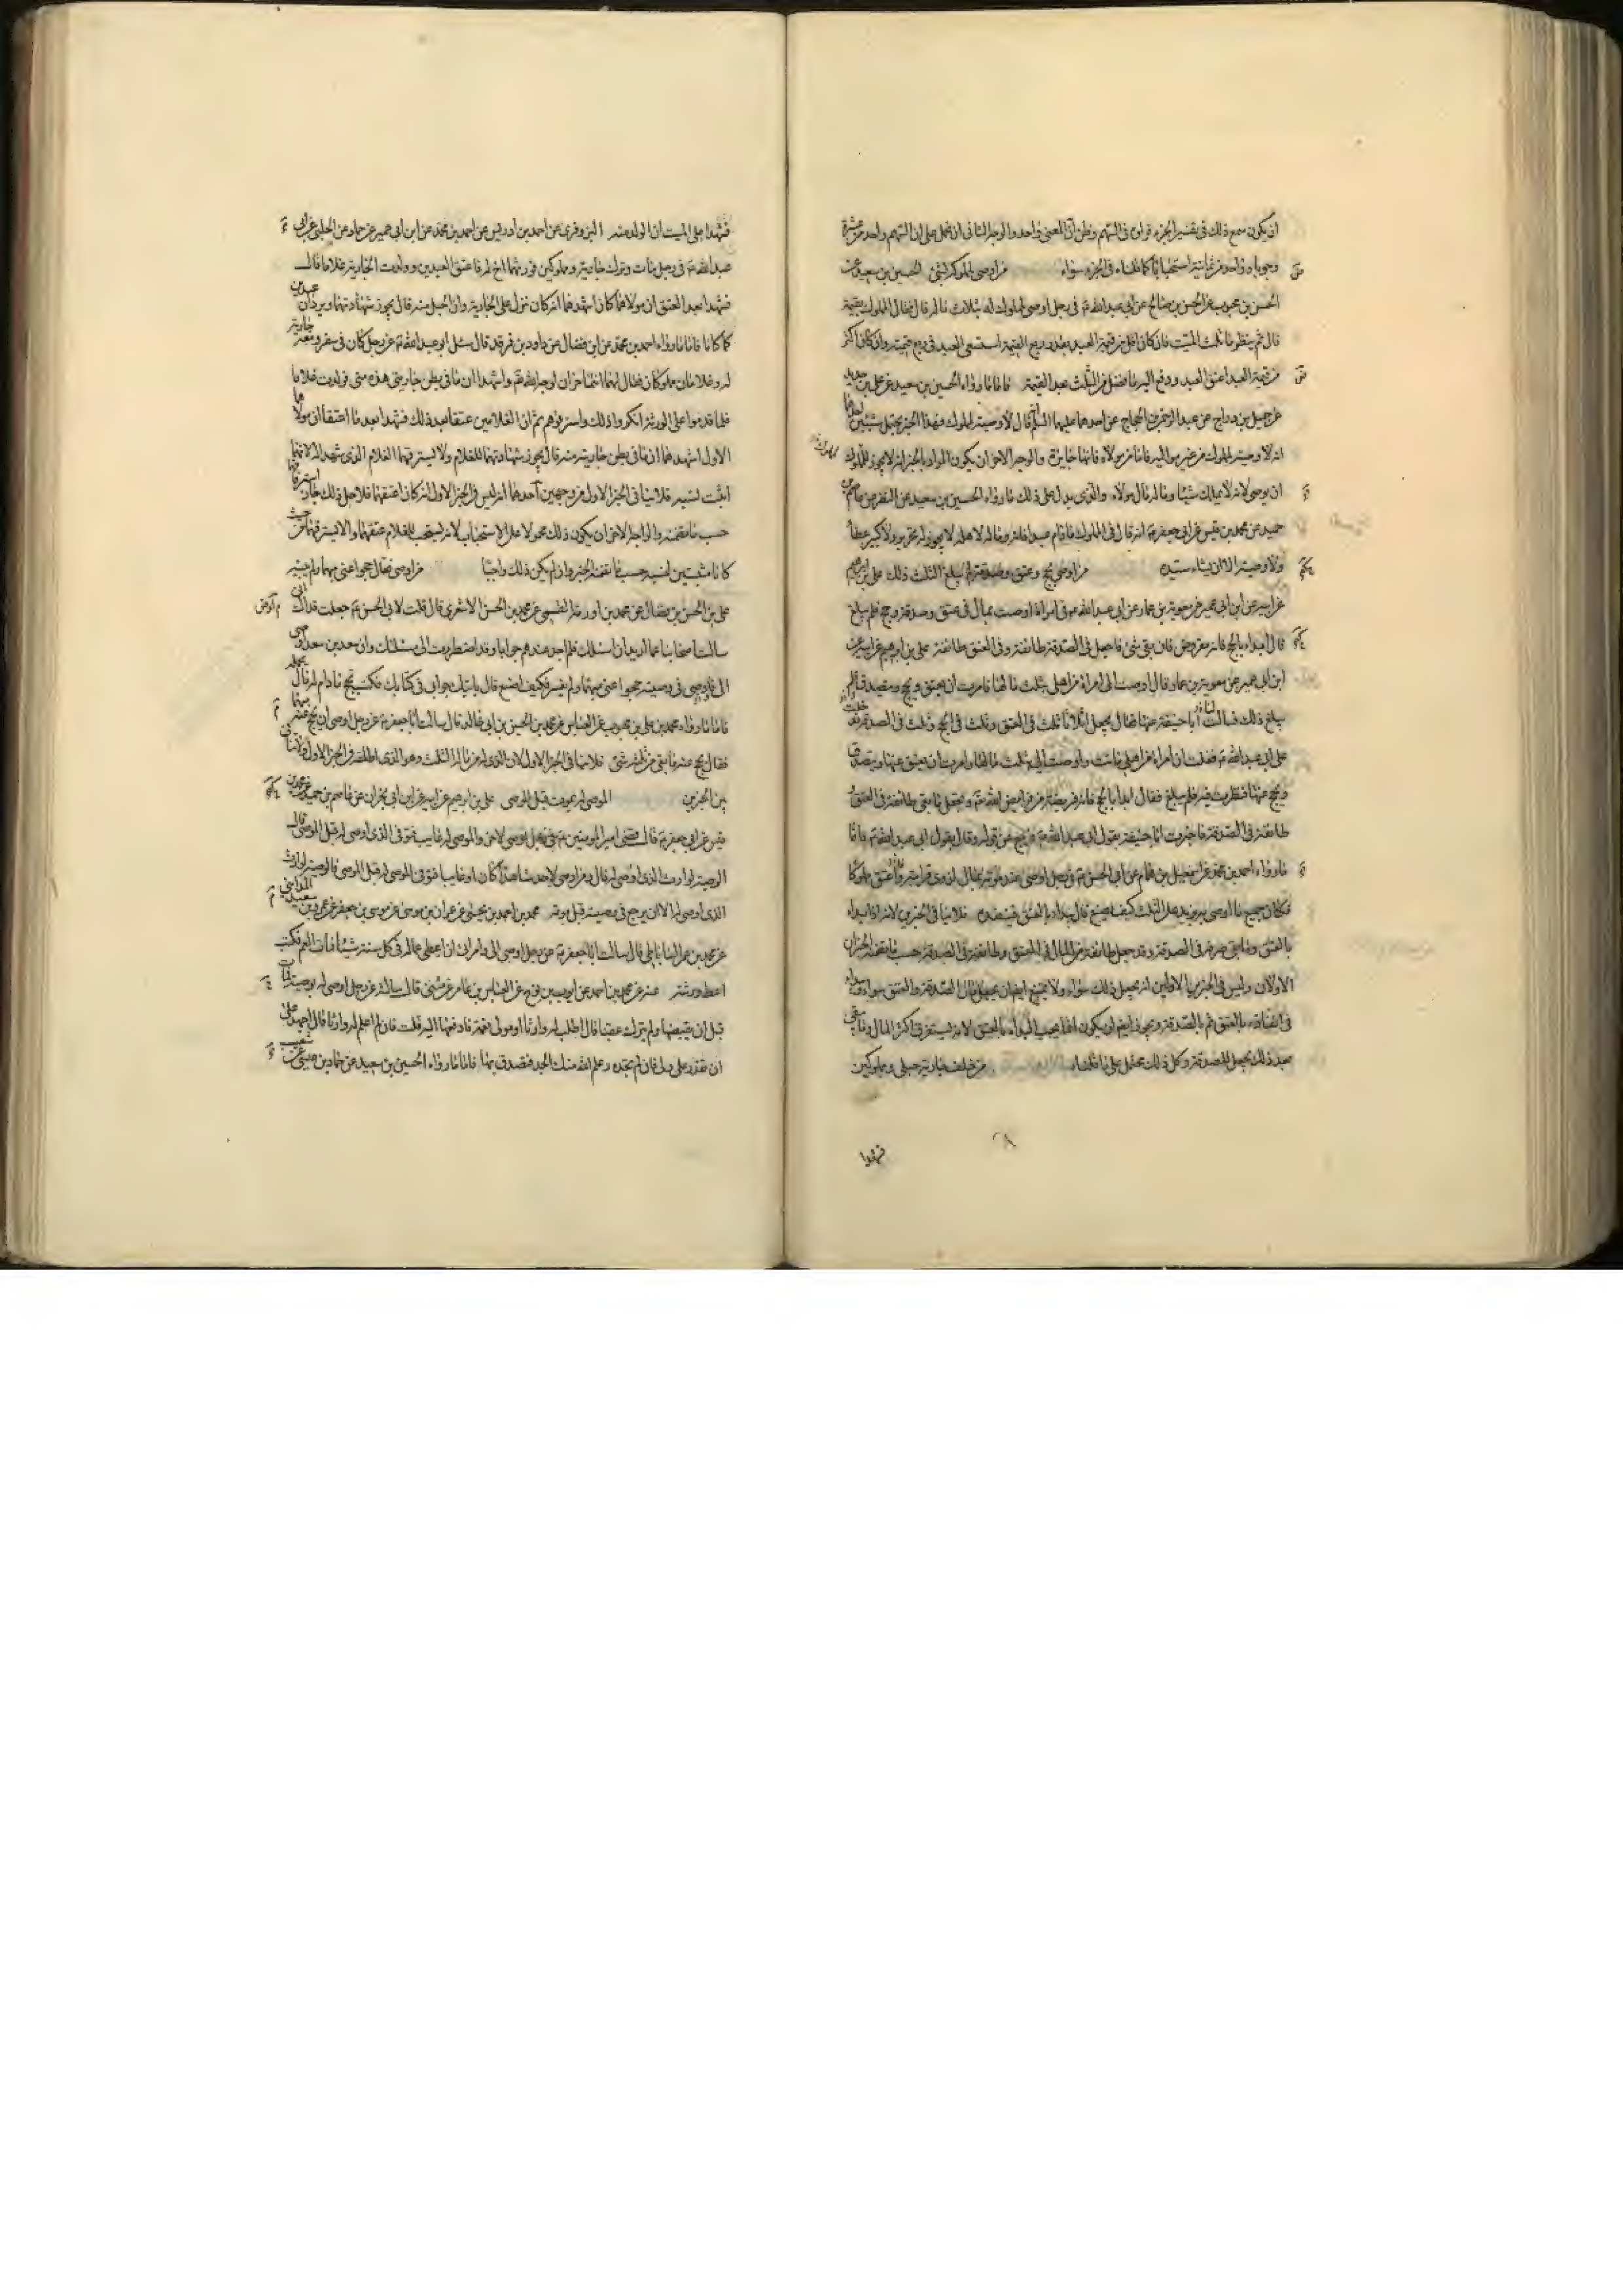 ان يكون سمع ذلك في تفسير الجزء فراوى في السهم وظن ان المعنى واحد والوجه الثاني ان نحمل على ان السهم واحد من عشرة
وجوبا وواحد من ثمانية استحبابا كما قلناه في الجزء سواء من اوصى لمملوكه بشيء الحسين بن سعيد عن
الحسن بن محبوب عن الحسن بن صالح عن ابي عبد الله ع في رجل اوصى لمملوك له بثلث ماله قال فقال يقوم المملوك بقيمة
قال ثم ينظر ما ثلث الميت فان كان اقل من قيمة العبد بقدر ربع القيمة استسعى العبد في ربع قيمته وان كان اكثر
من قيمة العبد اعتق العبد ودفع اليه ما فضل من الثلث بعد القيمة فاما ما رواه الحسين بن سعيد عن علي بن حديد
عن جميل بن دراج عن عبد الرحمن بن الحجاج عن احدهما عليهما السلم انه قال لا وصية لمملوك فهذا الخبر يحتمل شيئين احدهما
انه لا وصية لمملوك من غير مواليه فاما من مولاه فانها جايزة والوجه الاخر ان يكون المراد بالخبر انه لا يجوز للمملوك
ان يوصي لانه لا يملك شيئا وماله مال مولاه والذي يدل على ذلك ما رواه الحسين بن سعيد عن النضر عن عاصم بن
حميد عن محمد بن قيس عن ابي جعفر ع انه قال في المملوك ما دام عبدا فانه وماله لاهله لا يجوز له تحرير ولا كثير عطاء
ولا وصية الا ان يشاء سيده من اوصى بحج وعتق وصدقة ولم يبلغ الثلث ذلك علي بن ابرهيم
عن ابيه عن ابن ابي عمير عن معوية بن عمار عن ابي عبد الله ع في امراة اوصت بمال في عتق وصدقة وحج فلم يبلغ
قال ابداء بالحج فانه مفروض فان بقي شيء فاجعل في الصدقة طائفة وفي العتق طائفة علي بن ابرهيم عن ابيه عن
ابن ابي عمير عن معوية بن عمار قال اوصت الي امراة من اهلي بثلث مالها فامرت ان يعتق ويحج ويتصدق فلم
يبلغ ذلك فسالت ابا حنيفة عنها فقال يجعل اثلاثا ثلث في العتق وثلث في الحج وثلث في الصدقة فدخلت
على ابي عبد الله ع فقلت ان امراة من اهلي ماتت واوصت الي بثلث مالها وامرت ان يعتق عنها ويتصدق
ويحج عنها فنظرت فيه فلم يبلغ فقال ابدا بالحج فانه فريضة من فرايض الله تع ويجعل ما بقي طائفة في العتق و
طائفة في الصدقة فاخبرت ابا حنيفة بقول ابي عبد الله ع فرجع عن قوله وقال بقول ابي عبد الله ع فاما
ما رواه احمد بن محمد عن اسمعيل بن همام عن ابي الحسن ع في رجل اوصى عند موته بمال لذوي قرابته واعتق مملوكا
فكان جميع ما اوصى به يزيد على الثلث كيف يصنع قال يبداء بالعتق فينفذه فلا ينافي الخبرين لانه اذا ابداء
بالعتق وما بقي صرفه في الصدقة وقد جعل طائفة من المال في العتق وطائفة في الصدقة حسب ما تضمنه الخبران
الاولان وليس في الخبرين الاولين انه يجعل ذلك سواء ولا يمتنع ايضا ان
في انفاذه بالعتق ثم بالصدقة ويجوز ايضا ان يكون انما يجب البداء بالعتق لانه يستغرق اكثر المال وما يبقى
بعد ذلك يجعل للصدقة وكل ذلك محتمل على ما قلناه من خلف جارية حبلى ومملوكين
فشهدا
فشهدا على الميت ان الولد منه البزوفري عن احمد بن ادريس عن احمد بن محمد عن ابن ابي عمير عن حماد عن الحلبي عن ابي
عبد الله ع في رجل مات وترك جارية ومملوكين فورثهما اخ له فاعتق العبدين وولدت الجارية غلاما
فشهدا بعد العتق ان مولاهما كان اشهدهما انه كان ينزل على الجارية وان الحبل منه قال يجوز شهادتهما ويردان عبدين
كما كانا فاما ما رواه احمد بن محمد عن ابن فضال عن داود بن فرقد قال سئل ابو عبد الله ع عن رجل كان في سفر ومعه جارية
له وغلامان مملوكان فقال لهما انتما حران لوجه الله تع واشهدا ان ما في بطن جاريتي هذه مني فولدت غلاما
فلما قدموا على الورثة انكروا ذلك واسترقوهم ثم ان الغلامين عتقا بعد ذلك فشهدا بعد ما اعتقا ان مولاهما
الاول اشهدهما ان ما في بطن جاريته منه قال يجوز شهادتهما للغلام ولا يسترقهما الغلام الذي شهدا له لانهما
اثبتا نسبه فلا ينافي الخبر الاول من وجهين احدهما انه ليس في الخبر الاول انه كان اعتقهما فلاجل ذلك جاز استرقاقهما
حسب ما تضمنه والوجه الاخر ان يكون ذلك محمولا على الاستحباب لانه يستحب للغلام عتقهما والا يسترقهما من حيث
كانا مثبتين لنسبه حسب ما تضمنه الخبر وان لم يكن ذلك واجبا من اوصى فقال حجوا عني مبهما ولم يبينه
علي بن الحسن بن فضال عن محمد بن اورمة القمي عن محمد بن الحسن الاشعري قال قلت لابي الحسن ع جعلت فداك اني
سالت اصحابنا عما اريد ان اسئلك فلم اجد عندهم جوابا وقد اضطررت الى مسئلتك وان سعد بن سعد اوصى
الي فاوصى في وصيته حجوا عني مبهما ولم يفسر فكيف اصنع قال ياتيك جوابي في كتابك فكتب يحج ما دام له مال يحمله
فاما ما رواه محمد بن علي بن محبوب عن العباس عن محمد بن الحسين بن ابي خالد قال سالت ابا جعفر ع عن رجل اوصى ان يحج عنه مبهما
فقال يحج عنه ما بقي من ثلثه شيء فلا ينافي الخبر الاول لان الذي له من ماله الثلث وهو الذي اطلقه في الخبر الاول ولا تنافي
بين الخبرين الموصى له يموت قبل الموصي علي بن ابرهيم عن ابيه عن ابن ابي نجران عن عاصم بن حميد عن محمد بن
قيس عن ابي جعفر ع قال قضى امير المومنين ع في رجل اوصى لاخر والموصى له غايب فتوفي الذي اوصى له قبل الموصي قال
الوصية لوارث الذي اوصى له قال ومن اوصى لاحد شاهدا كان او غايبا فتوفي الموصى له قبل الموصي فالوصية لوارث
الذي اوصى له الا ان يرجع في وصيته قبل موته محمد بن احمد بن يحيى عن عمران بن موسى عن موسى بن جعفر عن عمرو بن سعيد المدايني
عن محمد بن عمر الساباطي قال سالت ابا جعفر ع عن رجل اوصى الي وامرني ان اعطي عما له في كل سنة شيئا فمات العم فكتب
اعط ورثته عنه عن محمد بن احمد عن ايوب بن نوح عن العباس بن عامر عن مثنى قال سالته عن رجل اوصى له بوصية فمات
قبل ان يقبضها ولم يترك عقبا قال اطلب له وارثا او مولى نعمة فادفعها اليه قلت فان لم اعلم له وارثا قال اجهد على
ان تقدر على ولي فان لم تجده وعلم الله منك الجد فتصدق بها فاما ما رواه الحسين بن سعيد عن حماد بن عيسى عن شعيب